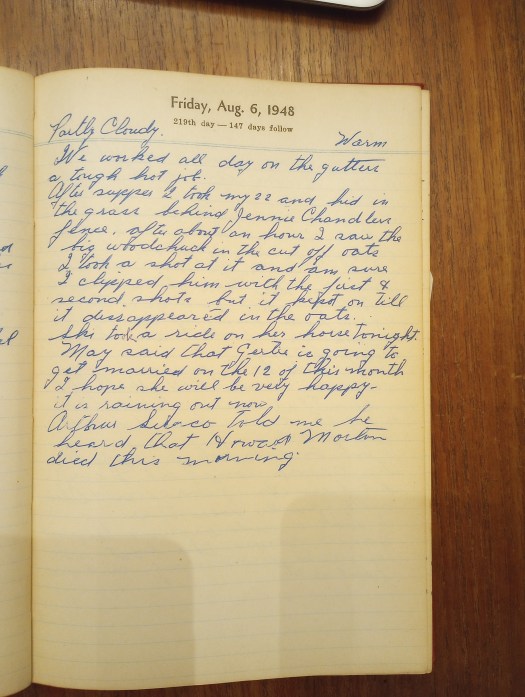 Friday, Aug. 6, 1948
219th day — 147 days follow
Partly Cloudy. Warm
We worked all day on the gutters
a tough hot job.
After supper I took my 22 and hid in
the grass behind Jennie Chandlers
fence. after about an hour I saw the
big woodchuck in the cut off oats
I took a shot at it and am sure
I clipped him with the first &
second shots but it kepst on till
it dissappeared in the oats.
She took a ride on her horse tonight.
May said that Gertie is going to
get married on the 12 of this month
I hope she will be very happy-
it is raining out now
Arthur told me he
heard that Howard Morton
died this morning.